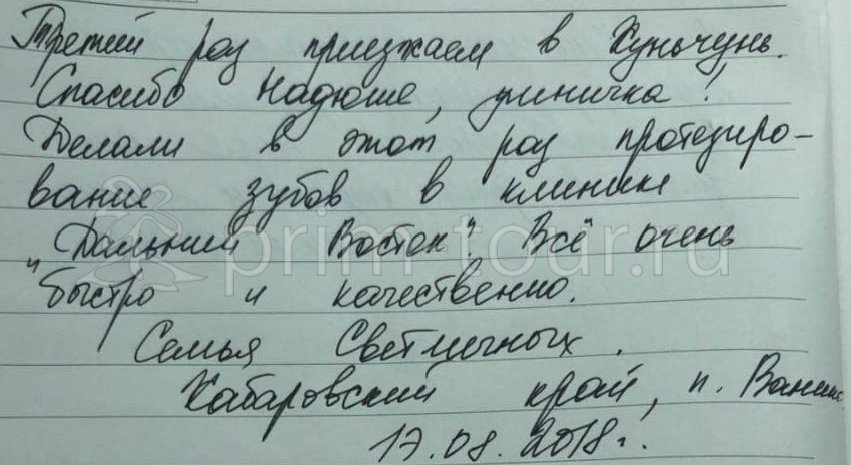 Третий раз приезжаем в Хуньчунь.
Спасибо Надюше, умничка!
Делали в этот раз протезиро-
вание зубов в клинике
"Дальний Восток". Всё очень
быстро и качественно.
Семья
Хабаровский край, п. Ванино
17.08.2018г.
prim-tour.ru